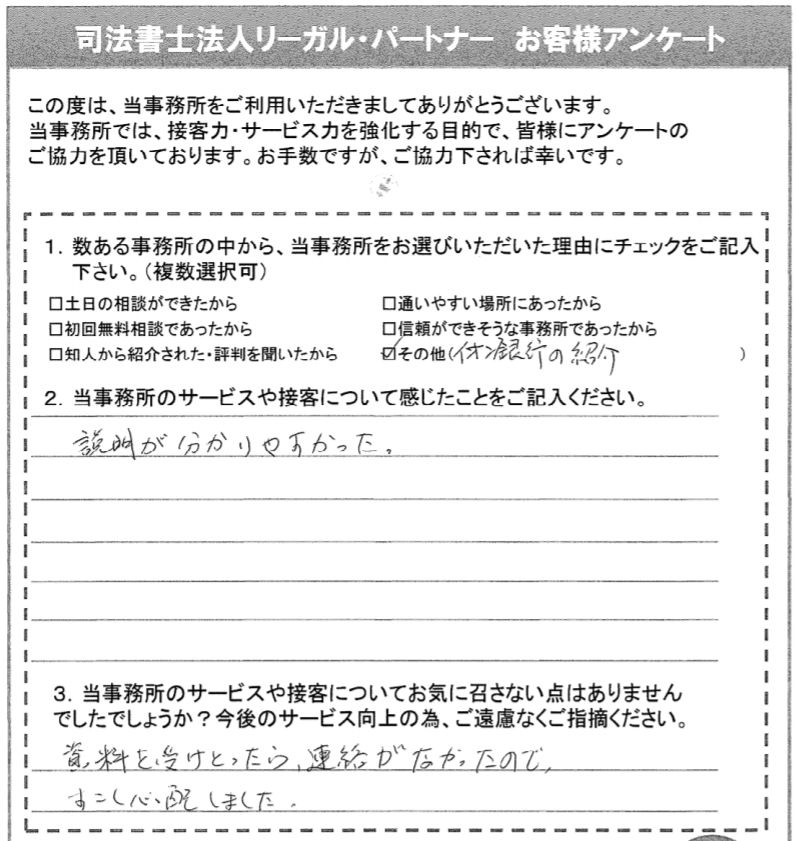 司法書士法人リーガル・パートナー　お客様アンケート
この度は、当事務所をご利用いただきましてありがとうございます。
当事務所では、接客力・サービス力を強化する目的で、皆様にアンケートの
ご協力を頂いております。お手数ですが、ご協力下されば幸いです。
1．数ある事務所の中から、当事務所をお選びいただいた理由にチェックをご記入
下さい。（複数選択可）
□土日の相談ができたから　□通いやすい場所にあったから
□初回無料相談であったから　□信頼ができそうな事務所であったから
□知人から紹介された・評判を聞いたから　☑その他（イオン銀行の紹介）
2．当事務所のサービスや接客について感じたことをご記入ください。
説明が分かりやすかった。
3．当事務所のサービスや接客についてお気に召さない点はありません
でしたでしょうか？今後のサービス向上の為、ご遠慮なくご指摘ください。
資料を受けとったら、連絡がなかったので、
すこし心配しました。